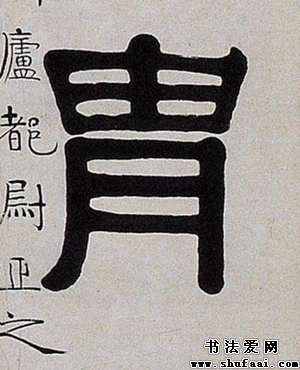 胄
廬都尉正之
书法爱网
www.shufaai.com